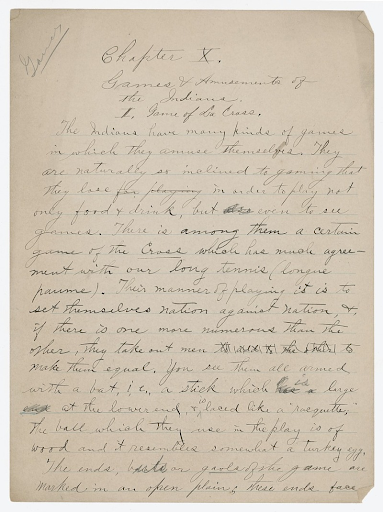 Games
Chapter X.
Games & Amusements of
the Indians.
I. Game of La Cross.
The Indians have many kinds of games
in which they amuse themselves. They
are naturally so inclined to gaming that
they lose for playing in order to play not
only food & drink, but also even to see
games. There is among them a certain
game of the Cross which has much agree-
ment with our long tennis (longue
paume). Their manner of playing it is to
set themselves nation against nation, &,
if there is one more numerous than the
other, they take out men to
make them equal. You see them all armed
with a bat, i.e., a stick which has a large
at the lower end, & laced like a "racquette."
The ball which they use in the play is of
wood and it resembles somewhat a turkey egg.
The ends, or goals of the game are
marked in an open plain; these ends face